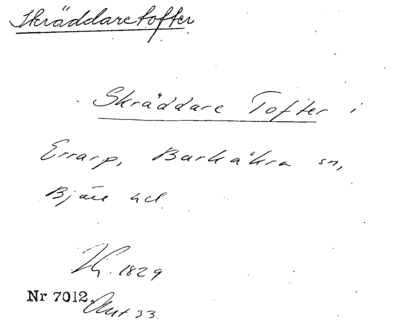 Skräddaretofter
Skräddare Tofter i
Errarp, Barkåkra sn,
Bjäre hd.
1829
Nr 7012. Akt 33.